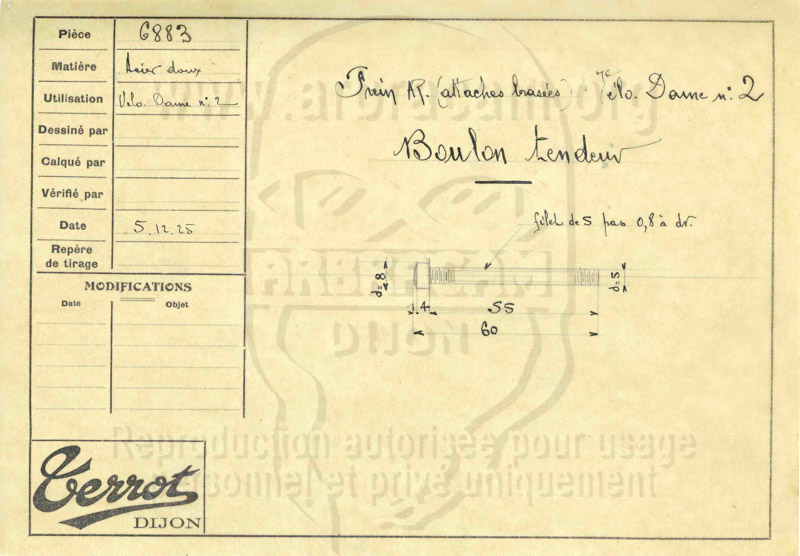 Pièce 6883
Matière Acier doux
Utilisation Vélo. Dame n° 2
Dessiné par
Calqué par
Vérifié par
Date 5.12.25
Repère
de tirage
MODIFICATIONS
Date Objet
Frein AR. (attaches brasées) Vélo. Dame n° 2
Boulon tendeur
filet de 5 pas 0,8 à dr.
d=8
d=5
4
55
60
www.arbracam.org
ARBRACAM
DIJON
Reproduction autorisée pour usage
personnel et privé uniquement
Terrot
DIJON